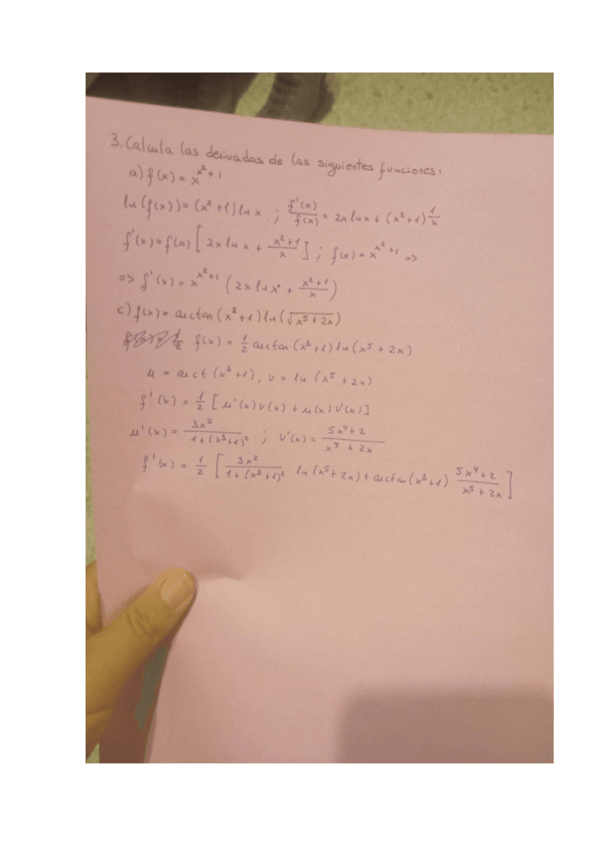 3. Calcula las derivadas de las siguientes funciones:
a) f(x) = x^(x²+1)
ln(f(x)) = (x²+1) ln x ; f'(x)/f(x) = 2x ln x + (x²+1) 1/x
f'(x) = f(x) [2x ln x + (x²+1)/x] ; f(x) = x^(x²+1) =>
=> f'(x) = x^(x²+1) (2x ln x + (x²+1)/x)
c) f(x) = arctan(x³+1) ln(√(x⁵+2x))
f(x) = 1/2 arctan(x³+1) ln(x⁵+2x)
u = arct(x³+1), v = ln(x⁵+2x)
f'(x) = 1/2 [u'(x)v(x) + u(x)v'(x)]
u'(x) = 3x²/(1+(x³+1)²) ; v'(x) = (5x⁴+2)/(x⁵+2x)
f'(x) = 1/2 [3x²/(1+(x³+1)²) ln(x⁵+2x) + arctan(x³+1) (5x⁴+2)/(x⁵+2x)]